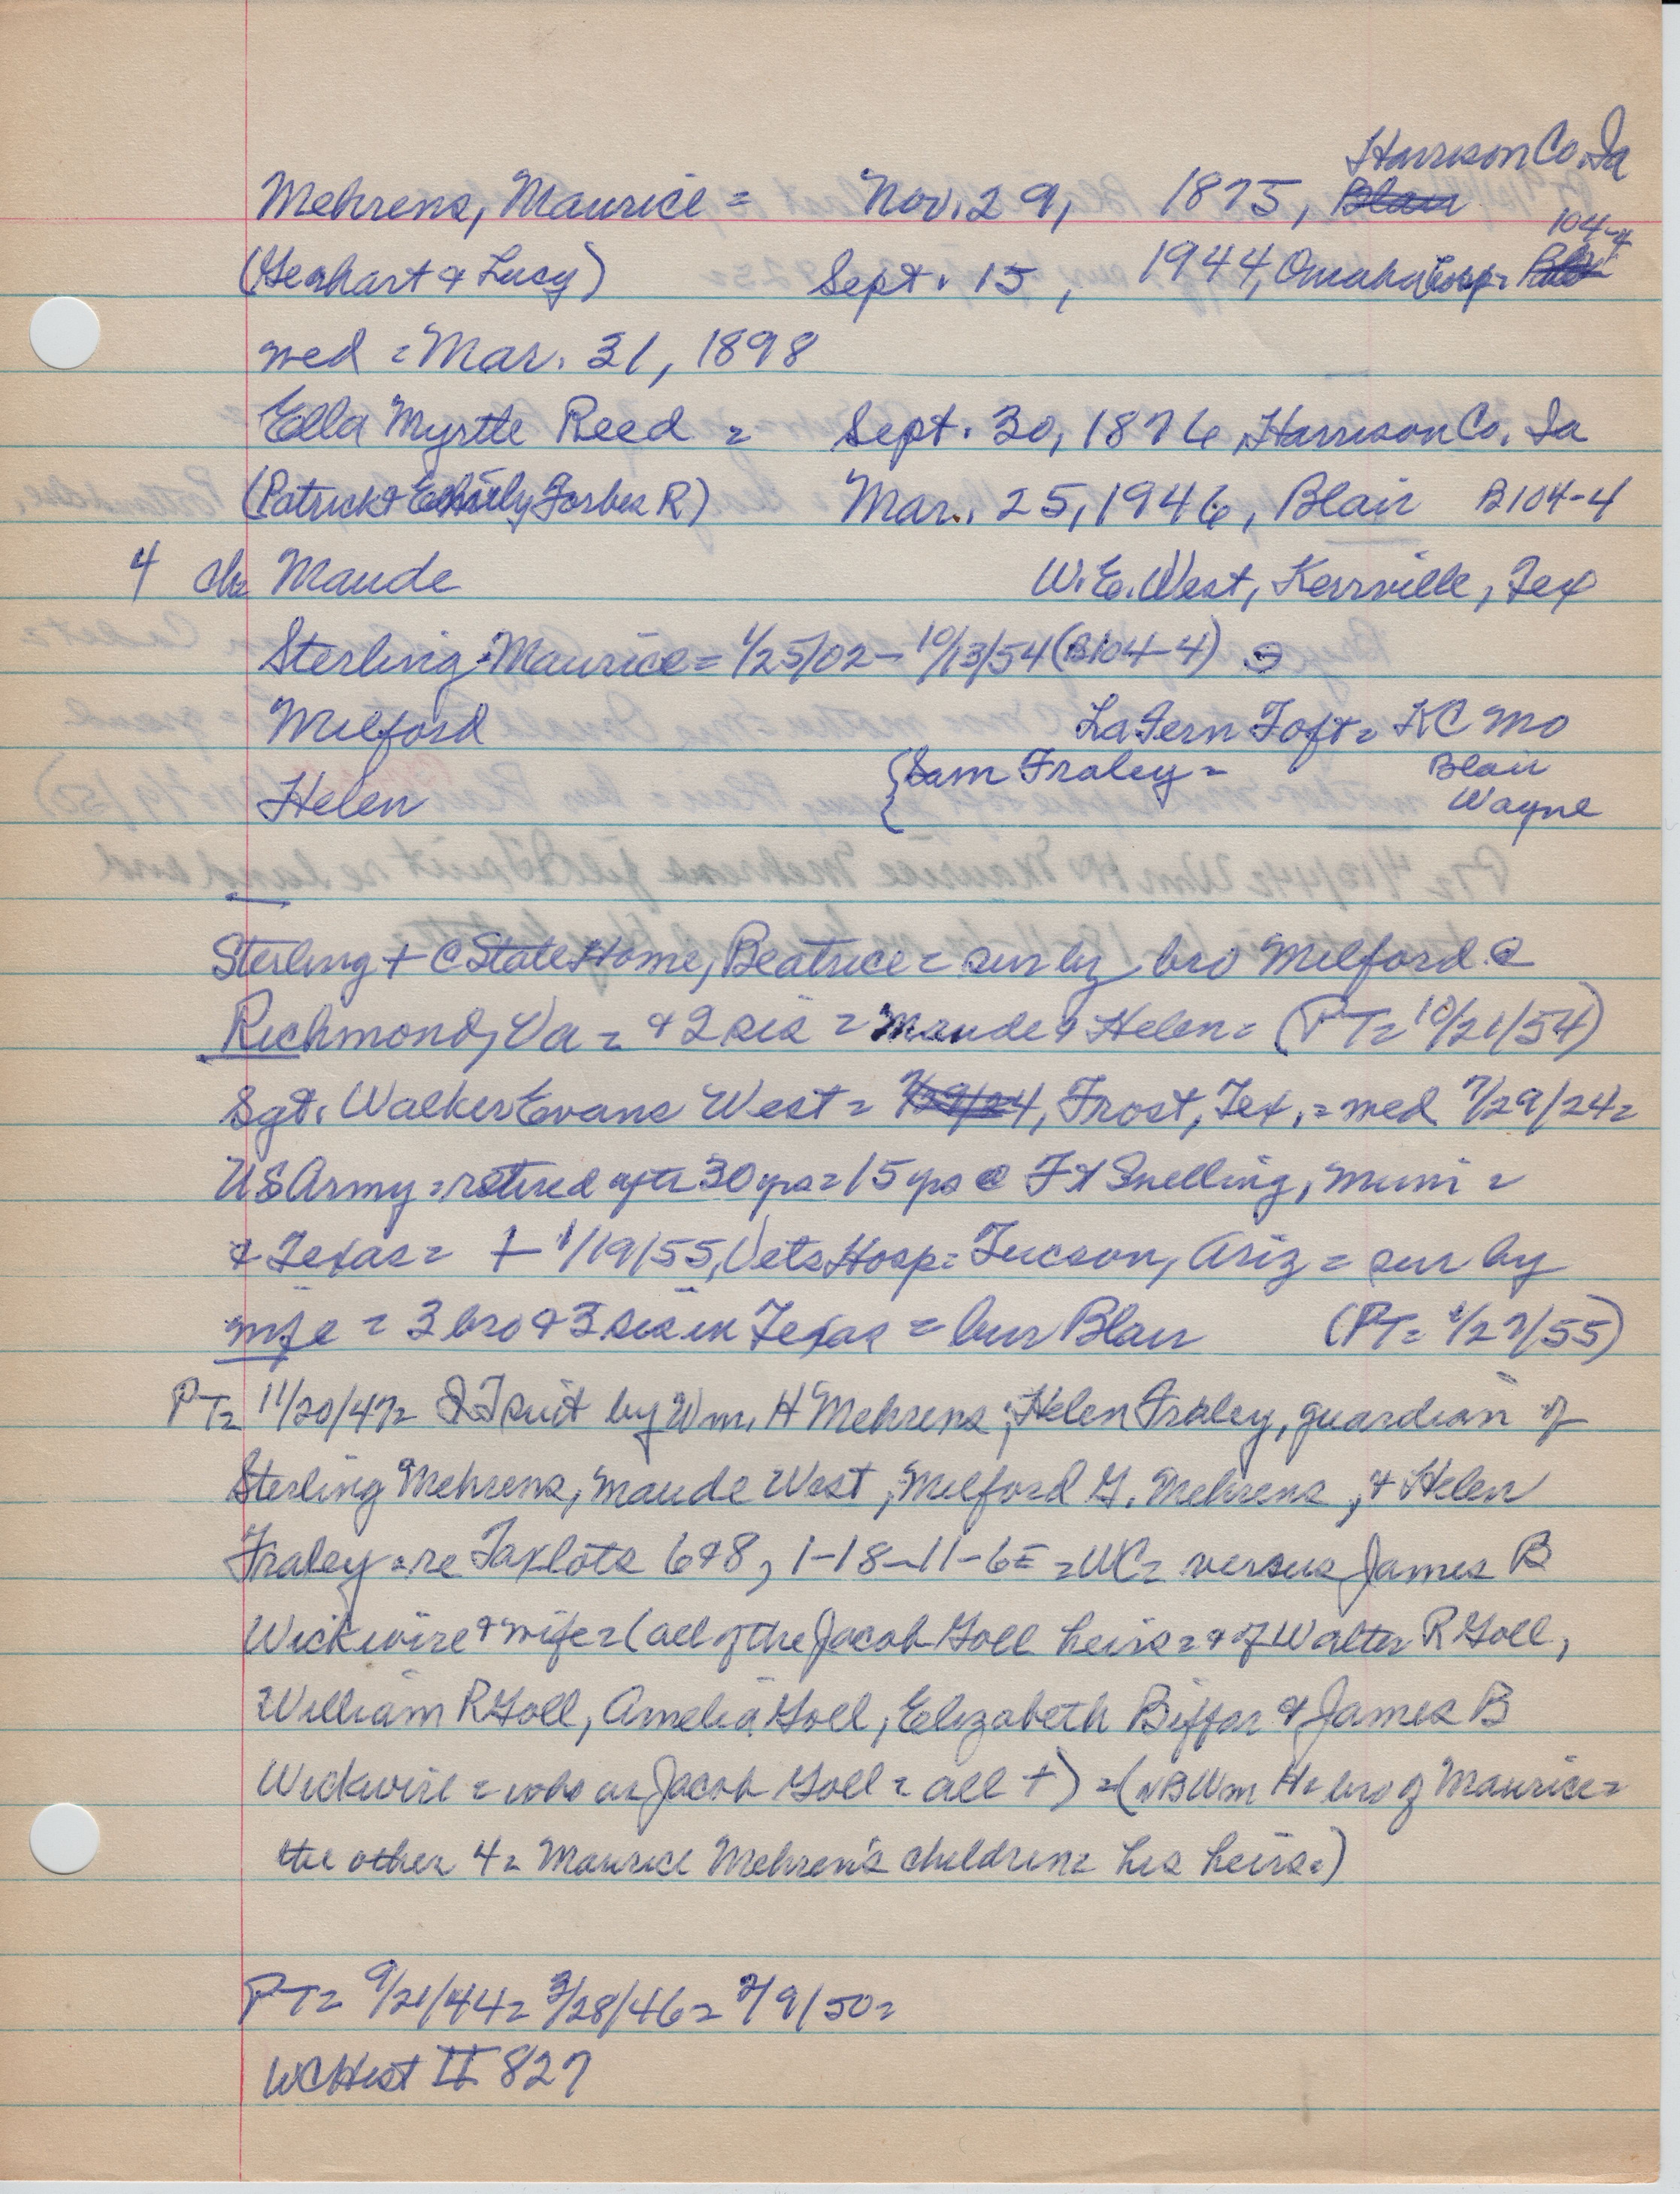 Harrison Co. Ia
Mehrens, Maurice = Nov. 29, 1875, Blair
104-4
(Gerhart & Lucy) Sept. 15, 1944, Omaha Hosp =
med = Mar. 31, 1898
Ella Myrtle Reed = Sept. 30, 1876, Harrison Co. Ia
(Patrick & Forbes R) Mar. 25, 1946, Blair B104-4
4 ch = Maude W.E. West, Kerrville, Tex
Sterling Maurice = 1/25/02 - 10/13/54 (B104-4)
Milford LaFern Toft = KC Mo
{Sam Fraley = Blair
Helen Wayne
Sterling + @ State Home, Beatrice = sur by bro Milford @
Richmond, Va = & 2 sis = Maude & Helen = (PT = 10/21/54)
Sgt. Walker Evans West = Frost, Tex. = med 7/29/24 =
US Army = retired after 30 yrs = 15 yrs @ Ft Snelling, Minn =
& Texas = + 1/19/55, Vets Hosp = Tucson, Ariz = sur by
wife = 3 bro & 3 sis in Texas = bur Blair (PT = 1/27/55)
PT = 11/20/47 = QT suit by Wm. H Mehrens; Helen Fraley, guardian of
Sterling Mehrens, Maude West, Milford G. Mehrens, & Helen
Fraley = re Taxlots 6 & 8, 1-18-11-6E = WC = versus James B
Wickwire & wife = (all of the Jacob Goll heirs = & of Walter R Goll,
William R Goll, Amelia Goll, Elizabeth Biffar & James B
Wickwire = who as Jacob Goll = all +) = (NB Wm H = bro of Maurice =
the other 4 = Maurice Mehren's children = his heirs =)
PT = 9/21/44 = 3/28/46 = 2/9/50 =
WCHist II 827